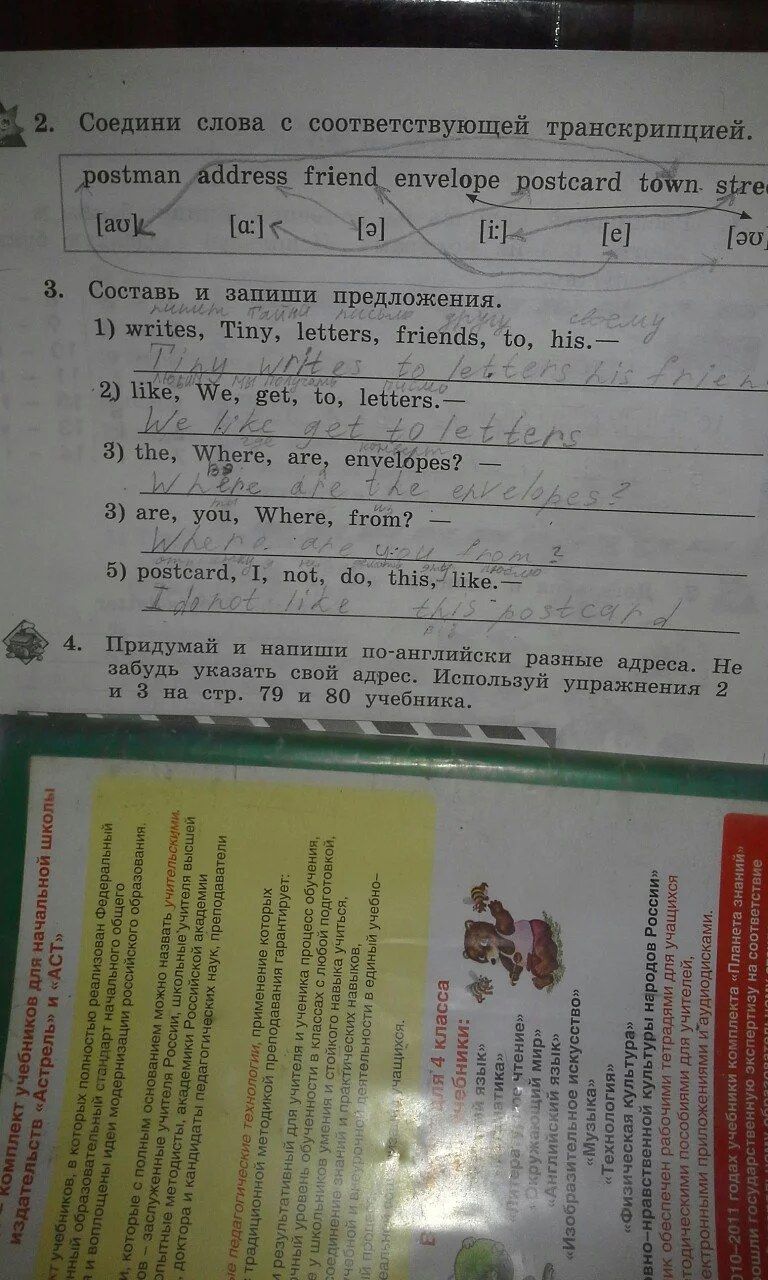 2. Соедини слова с соответствующей транскрипцией.
postman address friend envelope postcard town stree
[aʊ] [ɑ:] [ə] [i:] [e] [əʊ]
3. Составь и запиши предложения.
пишет Тайни письмо другу своему
1) writes, Tiny, letters, friends, to, his.—
Tiny writes to letters his frien
любим мы получать письмо
2) like, We, get, to, letters.—
We like get to letters
где конверт
3) the, Where, are, envelopes? —
Where are the envelopes?
3) are, you, Where, from? —
Where are you from?
5) postcard, I, not, do, this, like.—
I do not like this postcard
4. Придумай и напиши по-английски разные адреса. Не
забудь указать свой адрес. Используй упражнения 2
и 3 на стр. 79 и 80 учебника.
– комплект учебников для начальной школы
издательств «Астрель» и «АСТ»
кт учебников, в которых полностью реализован Федеральный
ный образовательный стандарт начального общего
я и воплощены идеи модернизации российского образования.
и, которые с полным основанием можно назвать учительскими.
в – заслуженные учителя России, школьные учителя высшей
опытные методисты, академики Российской академии
доктора и кандидаты педагогических наук, преподаватели
ые педагогические технологии, применение которых
традиционной методикой преподавания гарантирует:
и результативный для учителя и ученика процесс обучения,
чный уровень обученности в классах с любой подготовкой,
е у школьников умения и стойкого навыка учиться,
соединение знаний и практических навыков,
учебной и внеурочной деятельности в единый учебно–
учащихся.
для 4 класса
чебники:
язык»
матика»
ное чтение»
Окружающий мир»
«Английский язык»
«Изобразительное искусство»
«Музыка»
«Технология»
«Физическая культура»
вно–нравственной культуры народов России»
ик обеспечен рабочими тетрадями для учащихся
тодическими пособиями для учителей,
ектронными приложениями и аудиодисками.
10–2011 годах учебники комплекта «Планета знаний»
ошли государственную экспертизу на соответствие